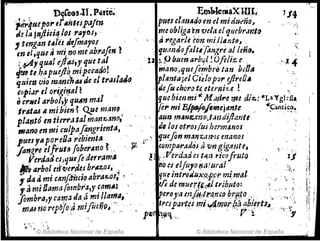 Deseos II. Parte.
porque por el antes passen
de la justicia los rayos,
y tengan tales desmayos
en el, que a mi no me abrasen?
Ay qual estas, y que tal
te ha puesto mi pecado!
quien vio mancha de el traslado
copiar el original?
o cruel arbol, y quan mal
tratas a mi bien! Que mano
planto en tierra tal manzano,
mano en mi culpa sangrienta,
pues ya por ella rebienta
sangre el fruto soberano?
Verdad es, que se derrama
arbol en verdes brazos,
y da a mi cansancio abrazos,
y a mi llama sombra, y cama:
sombra, y cama da a mi llama,
mas no reposo a mi sueño,
© Biblioteca Nacional de España
Emblema XIIII.
154
pues clauado en el mi dueño,
me obliga en vela el quebranto
a regarle con mi llanto,
quando falta sangre al leño.
O buen arbol! O feliz e
mano, que sembrò tan bella
planta; el Cielo por ella
de su choro te eternice!
que bien mi Madre me dize:
ser mi Esposo semejante
aun manzano, tan distante
de los otros sus hermanos
que son manzanos enanos
comparados a un gigante,
Verdad es tan rico fruto
no es el suyo natural
que introduxo por mi mal
de muerte el tributo:
pero ya en su tronco bruto
tres partes mi Amor ha abierto,
Cantico.
© Biblioteca Nacional de España